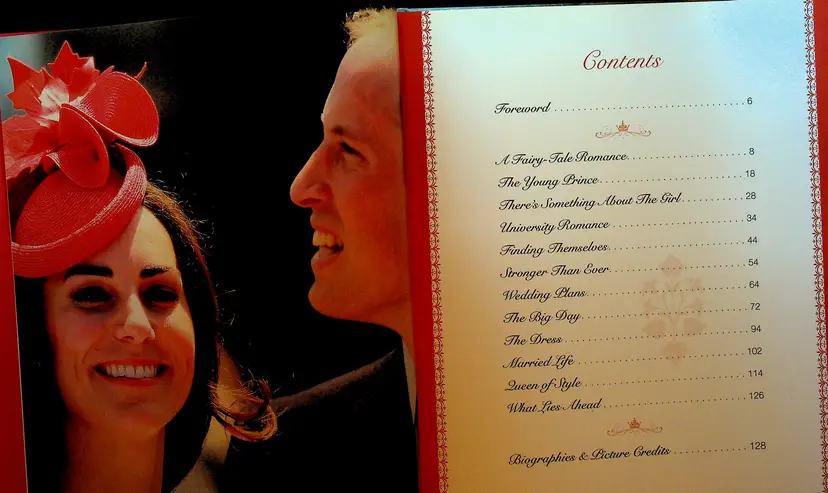 Contents
Foreword 6
A Fairy-Tale Romance 8
The Young Prince 18
There's Something About The Girl 28
University Romance 34
Finding Themselves 44
Stronger Than Ever 54
Wedding Plans 64
The Big Day 72
The Dress 94
Married Life 102
Queen of Style 114
What Lies Ahead 126
Biographies & Picture Credits 128